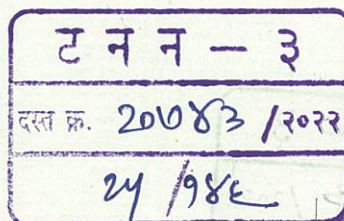 ट न न - ३
दस्त क्र. २०७४३ /२०२२
२५ /१४६